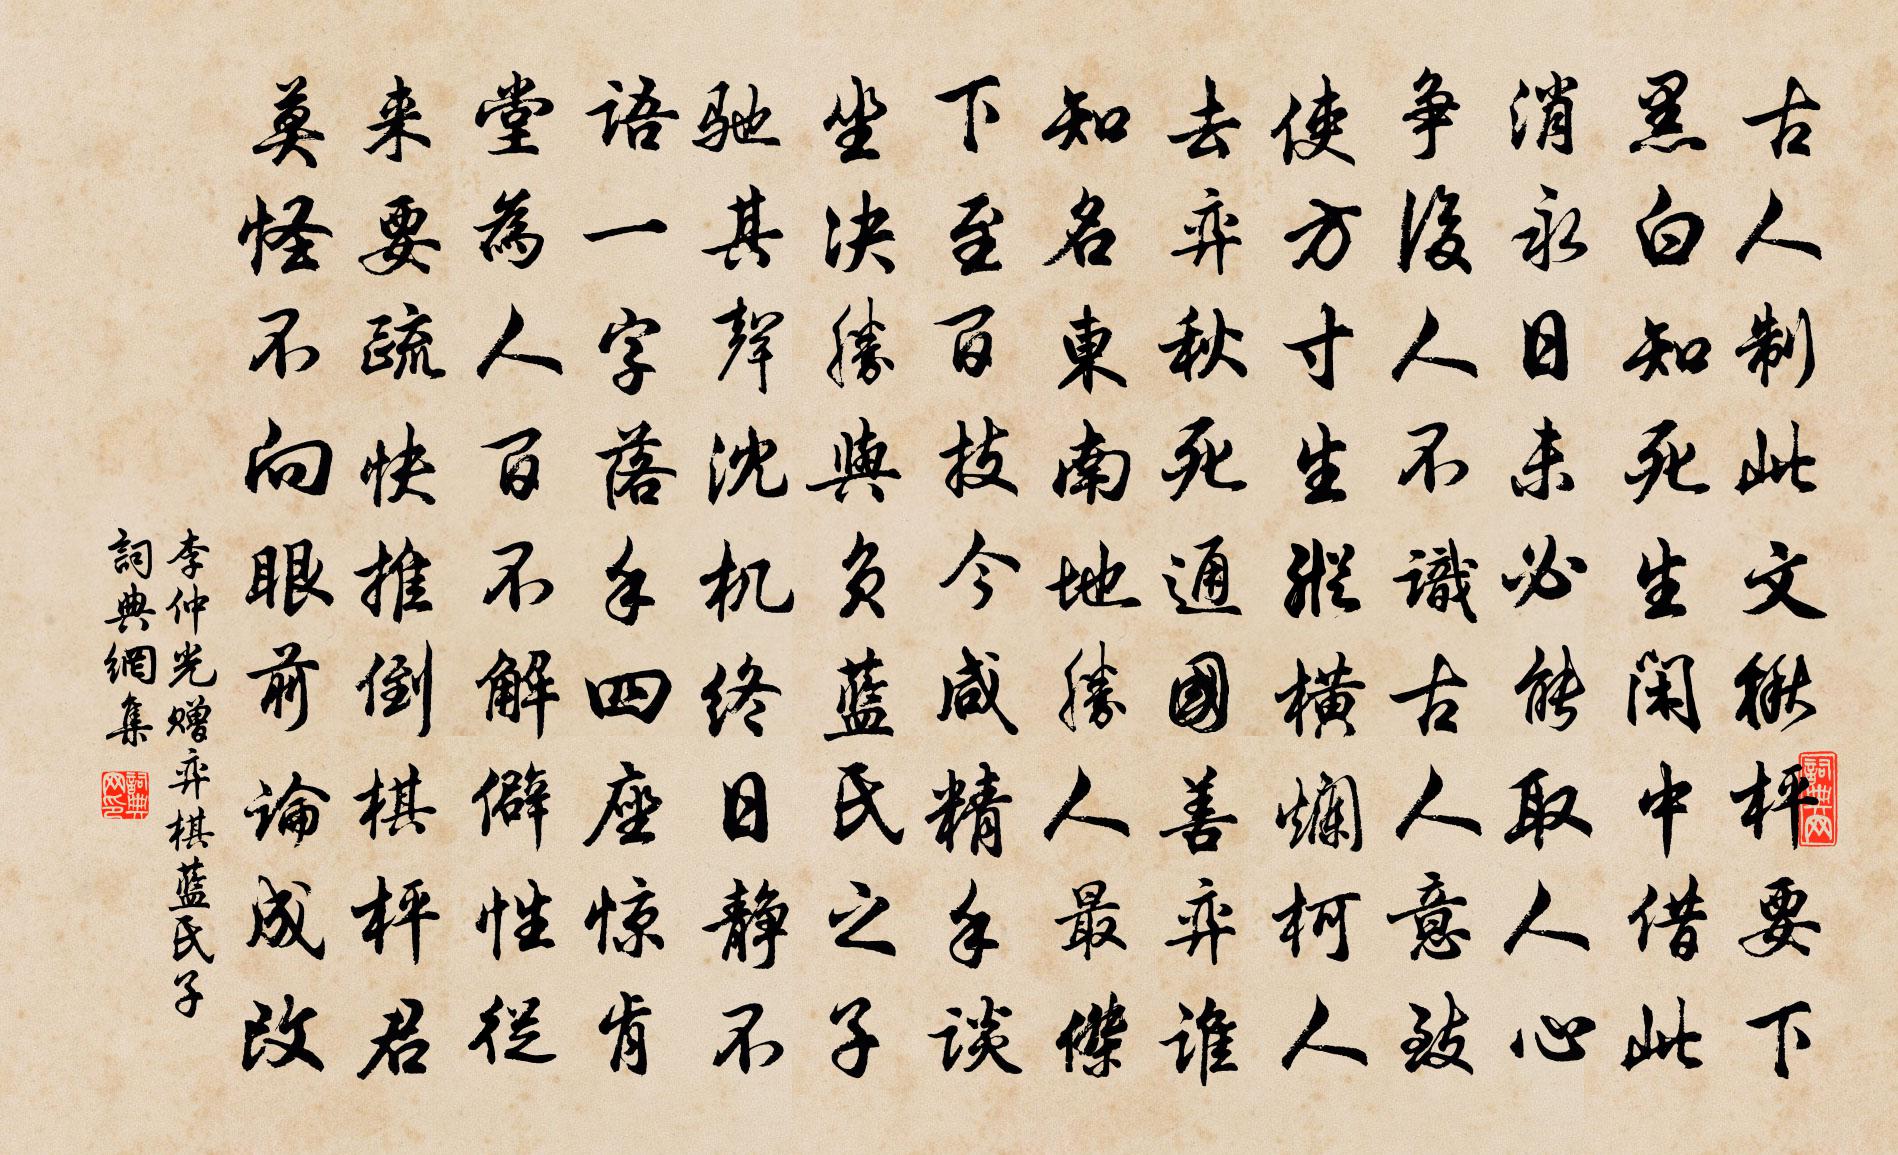 古人制此文楸枰要下
黑白知死生闲中借此
消永日未必能取人心
争後人不識古人意致
使方寸生縱橫爛柯人
去弈秋死通國善弈谁
知名東南地勝人最傑
下至百技今咸精手谈
坐决勝與负藍氏之子
驰其聲沈机终日静不
语一字落手四座惊肯
堂為人百不解僻性從
来要疏快推倒棋枰君
莫怪不向眼前論成改
李仲光赠弈棋藍氏子
詞典網集
詞典网
詞典网印